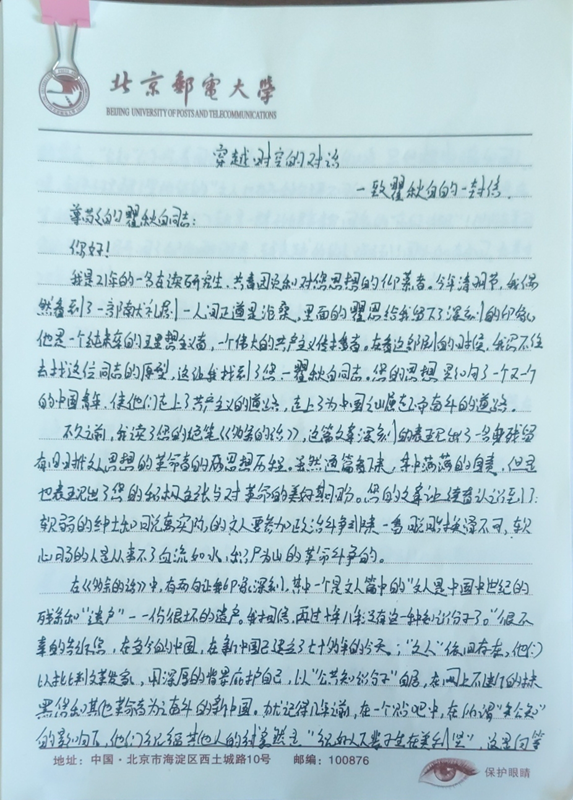 北京郵電大學
BEIJING UNIVERSITY OF POSTS AND TELECOMMUNICATIONS
穿越时空的对话
—致瞿秋白的一封信.
尊敬的瞿秋白同志:
你好!
我是21年的一名在读研究生,共青团员和对您思想的仰慕者。今年清明节,我偶
然看到了一部献礼剧—人间正道是沧桑,里面的瞿恩给我留下了深刻的印象,
他是一个纯未的理想主义者,一个伟大的共产主义传播者。在看这部剧的时候,我忍不住
去找这位同志的原型,这让我找到了您,—瞿秋白同志。您的思想影响了一个又一个
的中国青年,使他们走上了共产主义的道路,走上了为中国之奋斗的道路。
不久之前,我读了您的绝笔《多余的话》,这篇文章深刻的表现出了一名残留
有旧文人思想的革命者的历程。虽然通篇看下来,满满的自责,但是
也表现出了您的积极主张与对革命的美好期盼。您的文章让读者认识到了:
软弱的绅士和脱离实际的文人要参加政治斗争非来一番脱胎换骨不可,软
心弱的人是从事不了血流如水,尸山的革命斗争的。
在《多余的话》中,有两句让我印象深刻,其中一个是文人篇中的“文人是中国中世纪的
残余和“遗产”——一份很坏的遗产。我相信,再过十年八年没有这一种知识份子了。”很不
幸的告诉您,在当今的中国,在新中国已建立了七十多年的今天,“文人”依旧存在,他们
以批判文章,用深厚的背景庇护自己,以“公共知识份子”自居,在网上不断的抹
黑您和其他革命者为之奋斗的新中国。犹记得几年前,在一个贴吧中,在所谓“公知”
的影响下,他们
地址:中国·北京市海淀区西土城路10号 邮编:100876
保护眼睛